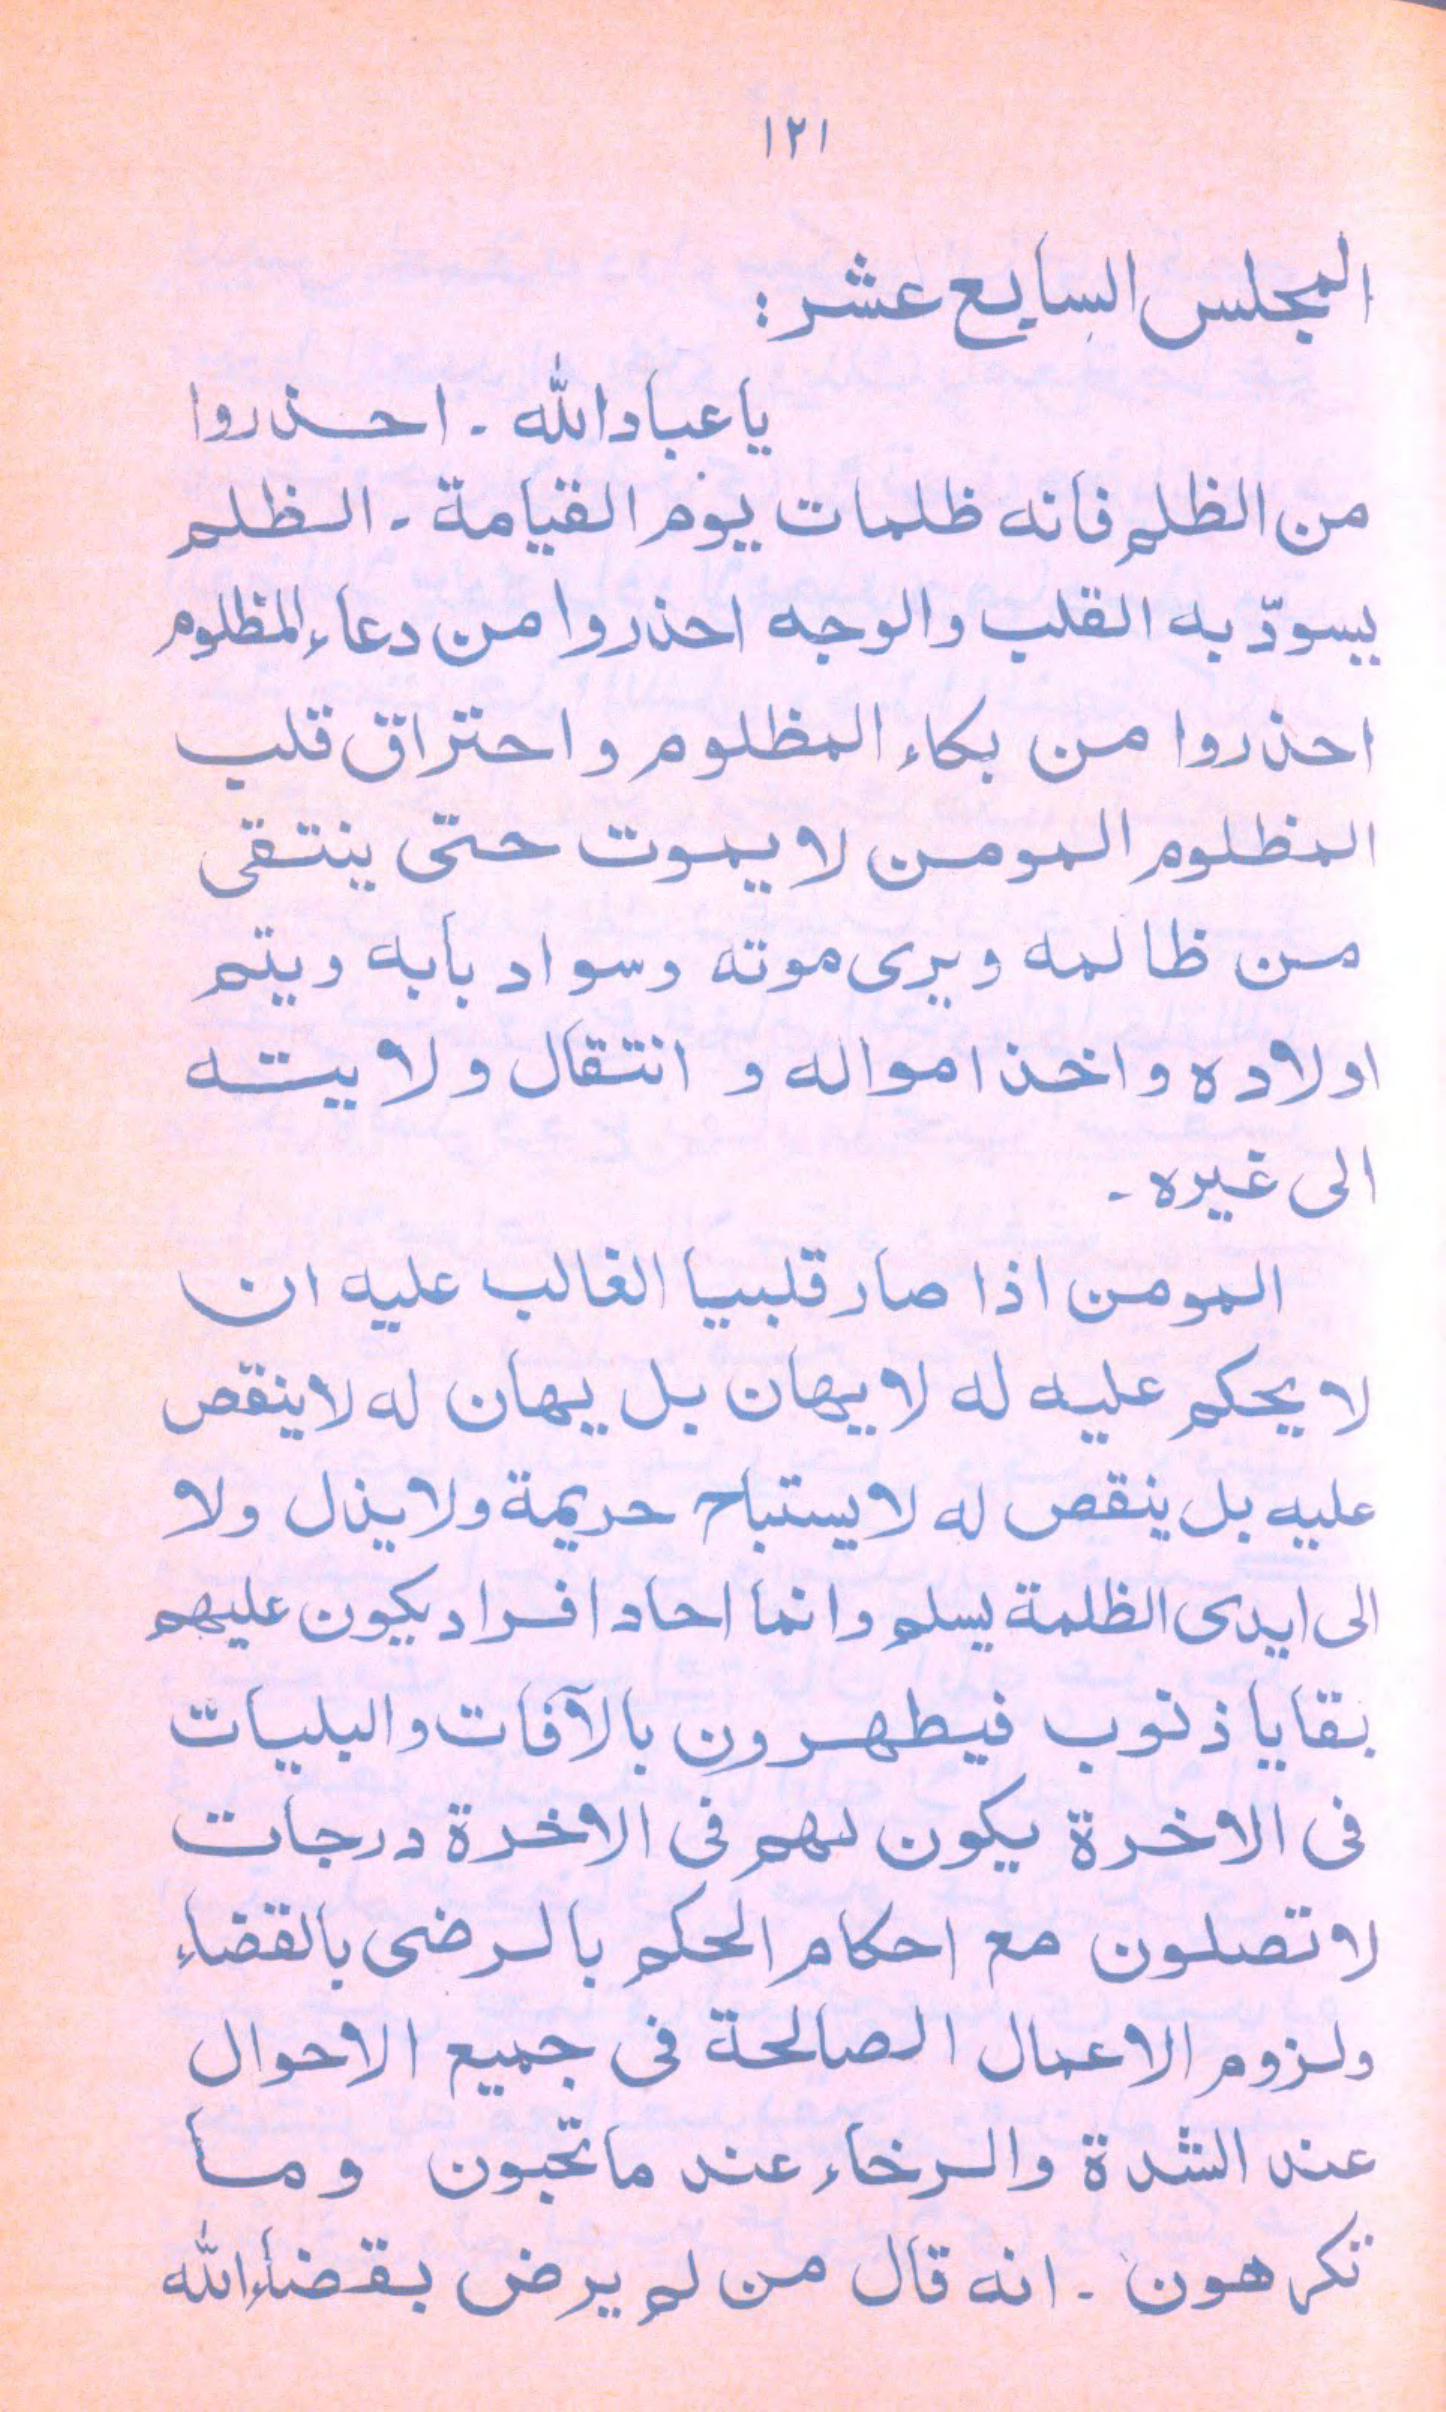 ١٢١
المجلس السابع عشر :
ياعباد الله ۔ احذروا
من الظلم فانه ظلمات يوم القيامة ۔ الظلم
يسودّ به القلب والوجه احذروا من دعاء المظلوم
احذروا من بكاء المظلوم و احتراق قلب
المظلوم المومن لا يموت حتى ينتقى
من ظالمه ويرى موته وسواد بابه ويتم
اولاده واخذ امواله و انتقال ولايته
الى غيره ۔
المومن اذا صار قلبيا الغالب عليه ان
لا يحكم عليه له لا يهان بل يهان له لا ينقص
عليه بل ينقص له لا يستباح حريمة ولا يذل ولا
الى ايدى الظلمة يسلم وانما احاد افراد يكون عليهم
بقايا ذنوب فيطهرون بالآفات والبليات
فى الاخرة يكون لهم فى الاخرة درجات
لا تصلون مع احكام الحكم بالرضى بالقضاء
ولزوم الاعمال الصالحة فى جميع الاحوال
عند الشدة والرخاء عند ما تحبون وما
تكرهون ۔ انه قال من لم يرض بقضاء الله